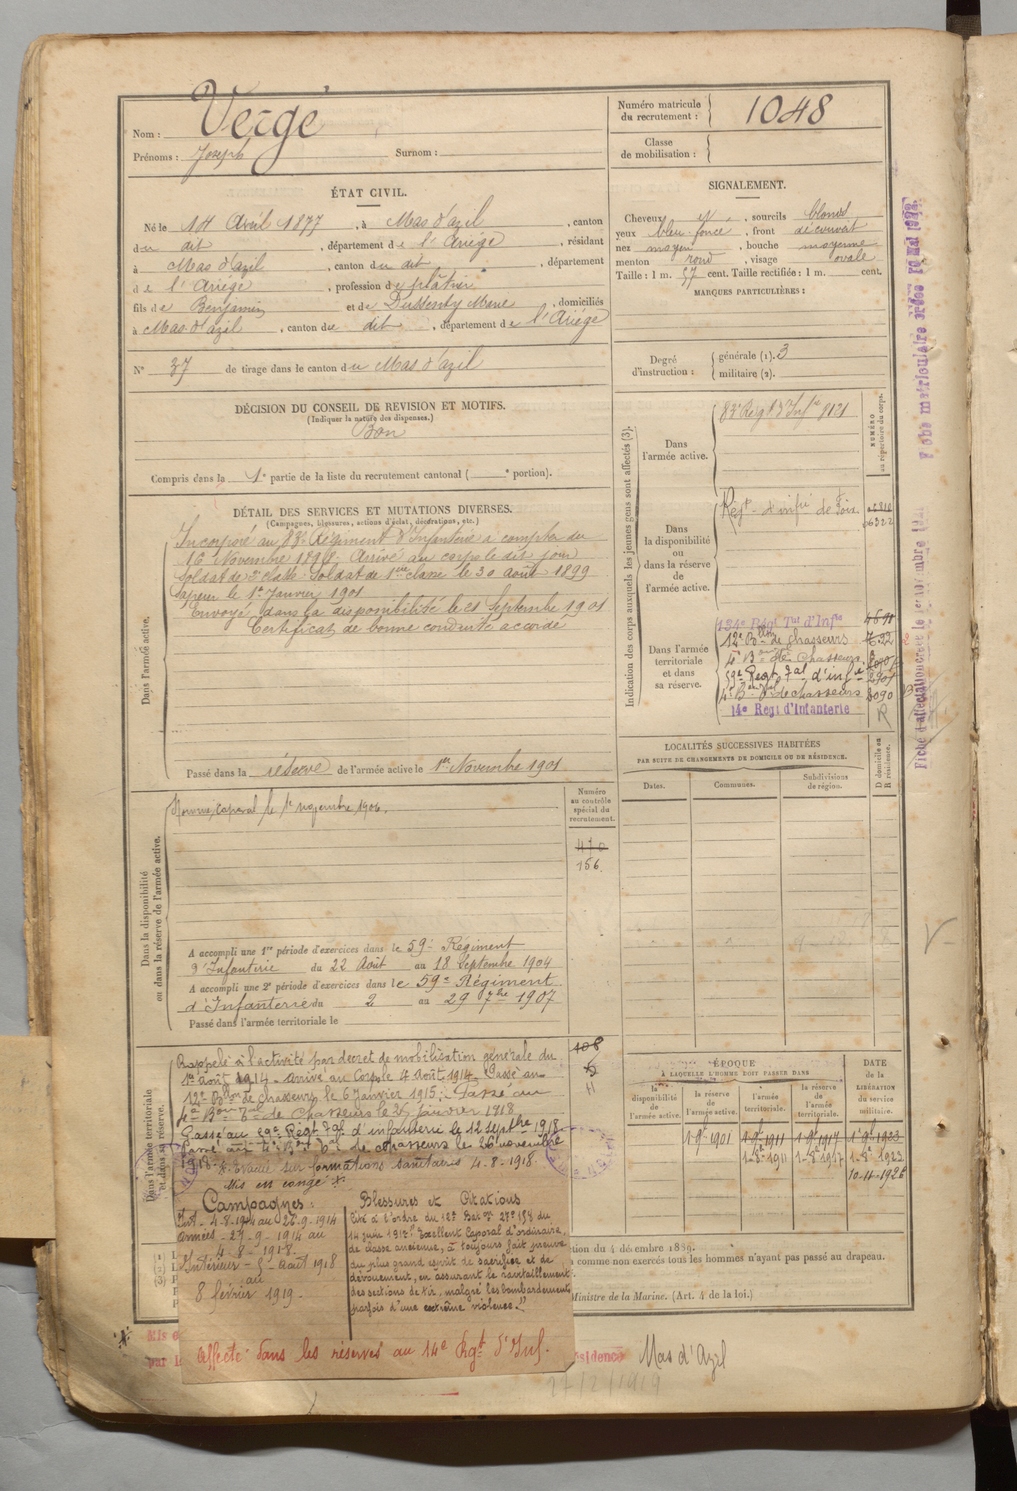 Nom : Vergé
Prénoms : Joseph Surnom :
Numéro matricule du recrutement : 1048
Classe de mobilisation :
ÉTAT CIVIL.
Né le 14 Avril 1877, à Mas d'azil, canton
du dit, département de l'Ariège, résidant
à Mas d'azil, canton du dit, département
de l'Ariège, profession de plâtrier
fils de Benjamin et de Marie, domiciliés
à Mas d'azil, canton du dit, département de l'Ariège
N° 37 de tirage dans le canton du Mas d'azil
SIGNALEMENT.
Cheveux et, sourcils blonds
yeux bleu foncé, front découvert
nez moyen, bouche moyenne
menton rond, visage ovale
Taille : 1 m. 57 cent. Taille rectifiée : 1 m. cent.
MARQUES PARTICULIÈRES :
Degré d'instruction : générale (1). 3
militaire (2).
DÉCISION DU CONSEIL DE REVISION ET MOTIFS.
(Indiquer la nature des dispenses.)
Bon
Compris dans la 1e partie de la liste du recrutement cantonal ( e portion).
DÉTAIL DES SERVICES ET MUTATIONS DIVERSES.
(Campagnes, blessures, actions d'éclat, décorations, etc.)
Dans l'armée active.
Incorporé au 83e Régiment d'Infanterie à compter du
16 Novembre 1898. Arrivé au corps le dit jour
soldat de 2e classe. Soldat de 1ère classe le 30 août 1899
Sapeur le 1er Janvier 1901
Envoyé dans la disponibilité le 21 Septembre 1901
Certificat de bonne conduite accordé
Passé dans la réserve de l'armée active le 1er Novembre 1901
Indication des corps auxquels les jeunes gens sont affectés (3).
NUMÉRO au répertoire du corps.
Dans l'armée active.
83e Régt d'Infie 9121
Dans la disponibilité ou dans la réserve de l'armée active.
Régt d'infie de Foix
Dans l'armée territoriale et dans sa réserve.
134e Régt Tal d'Infie
12e Bllon de chasseurs
4e Bon de Chasseurs
59e Régt Tal d'infie
4e Bon Tal de chasseurs 3090
14e Régt d'Infanterie R
Fiche matriculaire créée
Fiche d'affectation créée le
LOCALITÉS SUCCESSIVES HABITÉES
PAR SUITE DE CHANGEMENTS DE DOMICILE OU DE RÉSIDENCE.
Dates. Communes. Subdivisions de région. D domicile ou R résidence.
Numéro au contrôle spécial du recrutement.
470
156
Dans la disponibilité ou dans la réserve de l'armée active.
Nommé Caporal le 1er novembre 1906.
A accompli une 1re période d'exercices dans le 59e Régiment
d'Infanterie du 22 Août au 18 Septembre 1904
A accompli une 2e période d'exercices dans le 59e Régiment
d'Infanterie du 2 au 29 7bre 1907
Passé dans l'armée territoriale le
Dans l'armée territoriale et dans sa réserve.
Rappelé à l'activité par décret de mobilisation générale du
1er août 1914. Arrivé au Corps le 4 Août 1914. Passé au
12e Bllon de chasseurs le 6 Janvier 1915. Passé au
4e Bon Tal de Chasseurs le 25 janvier 1918
Passé au 59e Régt Tal d'infanterie le 12 Septbre 1918
Passé au 4e Bon Tal de chasseurs le 26 novembre
1918. Évacué sur formations sanitaires 4-8-1918.
Mis en congé
Campagnes :
Int. 4-8-1914 au 26-9-1914
Armées - 27-9-1914 au
4-8-1918.
Intérieur - 5 août 1918
au
8 février 1919.
Blessures et Citations
Cité à l'ordre du 12e Bat on 27e 158 du
14 juin 1917 "Excellent Caporal d'ordinaire,
de classe ancienne, a toujours fait preuve
du plus grand esprit de sacrifice et de
dévouement, en assurant le ravitaillement
des sections de tir, malgré les bombardements
parfois d'une extrême violence."
Affecté dans les réserves au 14e Rgt d'Inf.
ÉPOQUE
À LAQUELLE L'HOMME DOIT PASSER DANS
la disponibilité de l'armée active.
la réserve de l'armée active.
l'armée territoriale.
la réserve de l'armée territoriale.
DATE de la LIBÉRATION du service militaire.
1-9bre 1901 1-9bre 1911 1-9bre 1917 1-9bre 1923
1-8bre 1911 1-8bre 1917 1-8bre 1923
10-11-1926
tion du 4 décembre 1889.
comme non exercés tous les hommes n'ayant pas passé au drapeau.
Ministre de la Marine. (Art. 4 de la loi.)
résidence Mas d'Azil
27/2/1919